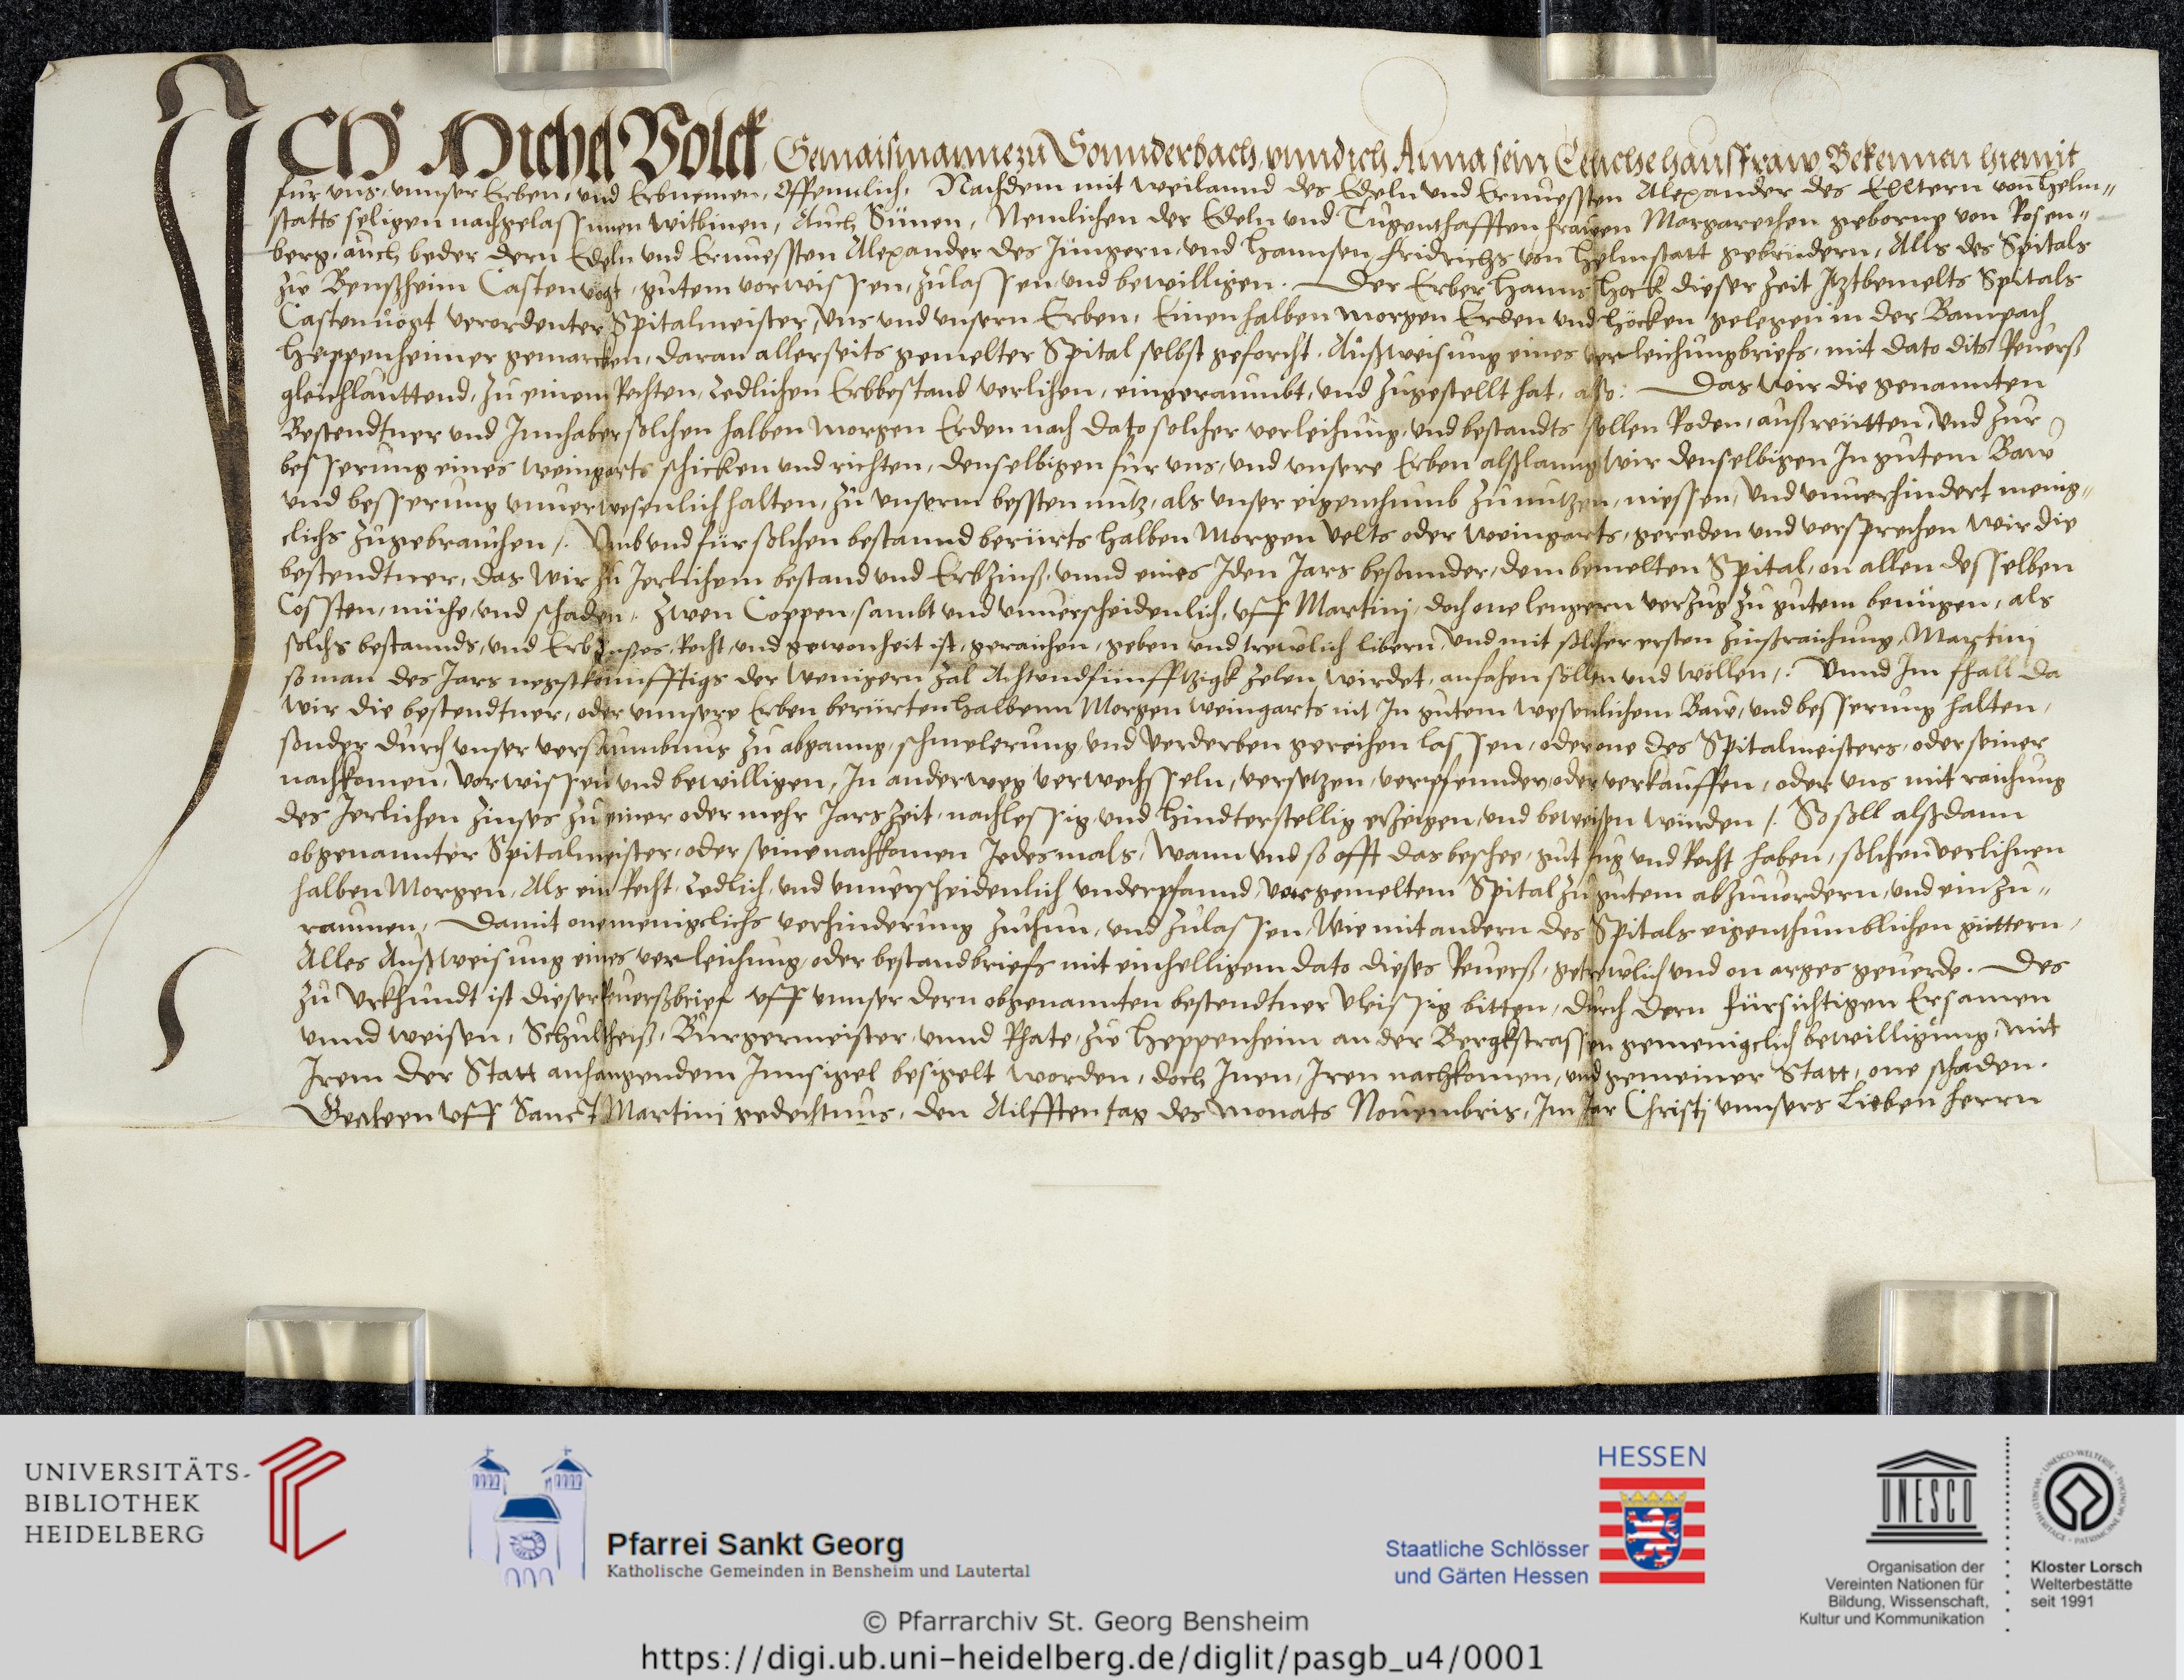 ICH Michel Volck Gemaißmanne zu Sonnderbach, vnnd ich Anna sein Eeliche haußfraw Bekennen hiemit
für vns, vnnser Erben, vnd Erbnemen, Offennlich, Nachdem mit weilannd des Edeln vnd Ernuessten Alexander des Elltern von Helm-
statts seligen nachgelassnnen witbinen, Auch Sünen, Nemlichen der Edeln vnd Tugenthafften frawen Margarethen geborne von Rosen-
berg, auch beder dern Edeln vnd Ernuessten Alexander des Jüngern, vnd Hannsen fridrichs von Helmstatt gebrüdern, Alls des Spitals
zu Bensheim Castenvogt, gutem vorwissen, zulassen, vnd bewilligen. Der Erber Hanns Hock dieser zeit Itztbemelts Spitals
Castenvögt verordenter Spitalmeister, Vns vnd vnsern Erben, Einen halben morgen Erden vnd höcken gelegen in der Bampach
Heppenheimer gemarcken, daran allerseits gemelter Spital selbst geforcht, Außweisung eines verleichungbriefs, mit dato dits Reuerß
gleichlauttend, zu einem Rechten, Redlichen Erbbestand verlihen, eingeraumbt, vnd zugestellt hat, also: Das wir die genannten
Bestendtner vnd Innhaber solchen halben morgen Erden nach dato solcher verleihung, vnd bestandts sollen Roden, außreütten, vnd zur
besserung eines weingarts schicken vnd richten, denselbigen für vns, vnd vnsere Erben alßlanng wir denselbigen In gutem Baw
vnd besserung vnuerwesenlich halten, zu vnserm bessten nutz, als vnser eigenthumb zu nutzen, niessen, vnd vnuerhindert menig-
clichs zugebrauchen /. Vmb vnd für solchen bestannd berürts halben Morgen velts oder weingarts, gereden vnd versprechen wir die
bestendtner, das wir zu Jerlichem bestand vnd Erbzinß, vnnd eines Iden Jars besonnder, dem bemelten Spital, on allen desselben
Cossten, mühe, vnd schaden, zwen Coppen, sambt vnd vnuerscheidenlich, vff Martinj, doch one lengern verzug zu gutem benügen, als
solchs bestannds, vnd Erbzinses, Recht, vnd gewonheit ist, geraichen, geben vnd trewlich libern, Vnd mit solcher ersten zinßraichung, Martinj
so man des Jars negstkünfftigs der wenigern zal Achtvndfünfftzigk zelen wirdet, anfahen söllen vnd wöllen /. Vnnd Im fhall da
wir die bestendtner, oder vnnsere Erben berürten halbenn Morgen weingarts nit In gutem wesenlichem Baw, vnd besserung halten,
sonder durch vnser versaumbnus zu abganng, schmelerung, vnd verderben gereihen lassen, oder one des Spitalmeisters, oder seiner
nachkomen, vorwissen vnd bewilligen, In ander weg verwechsseln, versetzen, verpfennden, oder verkauffen, oder vns mit raichung
des Jerlichen zinses zu einer oder mehr Jars zeit, nachlessig, vnd hindterstellig erzeigen, vnd beweisen würden /. So soll alßdann
obgenannter Spitalmeister, oder seine nachkomen Jedesmals, wann vnd so offt das beschee, gut fug vnd Recht haben, solchen verlihnen
halben Morgen, Als ein Recht, Redlich, vnd vnuerscheidenlich vnderpfannd, vorgemeltem Spital zu gutem abzuuordern, vnd einzu-
raumen, Damit one menigclichs verhinderung zuthun, vnd zulassen, wie mit andern des Spitals eigenthumblichen güttern,
Alles Außweisung eines verleichung, oder bestandbriefs mit einhelligem dato dieses Reuerß, getrewlich vnd on arges geuerde. Des
zu Vrkhundt ist dieser Reuerßbrief vff vnnser dern obgenannten bestendtner vleissig bitten, durch dern fürsichtigen Ersamen
vnnd weisen, Schultheiß, Burgermeister, vnnd Rhate, zu Heppenheim an der Bergkstrassen gemenigclich bewilligung, mit
Irem der Statt anhangendem Innsigel besigelt worden, doch Inen, Iren nachkomen, vnd gemeiner Statt, one schaden.
Geeben vff Sanct Martinj gedechtnus, den Ailfften tag des monats Nouembris, Im Jar Christj vnnsers lieben herrn
UNIVERSITÄTS-
BIBLIOTHEK
HEIDELBERG
Pfarrei Sankt Georg
Katholische Gemeinden in Bensheim und Lautertal
HESSEN
Staatliche Schlösser
und Gärten Hessen
UNESCO
Organisation der
Vereinten Nationen für
Bildung, Wissenschaft,
Kultur und Kommunikation
Kloster Lorsch
Welterbestätte
seit 1991
© Pfarrarchiv St. Georg Bensheim
https://digi.ub.uni-heidelberg.de/diglit/pasgb_u4/0001